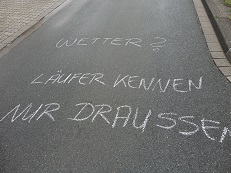 WETTER?
LÄUFER KENNEN
NUR DRAUSSEN